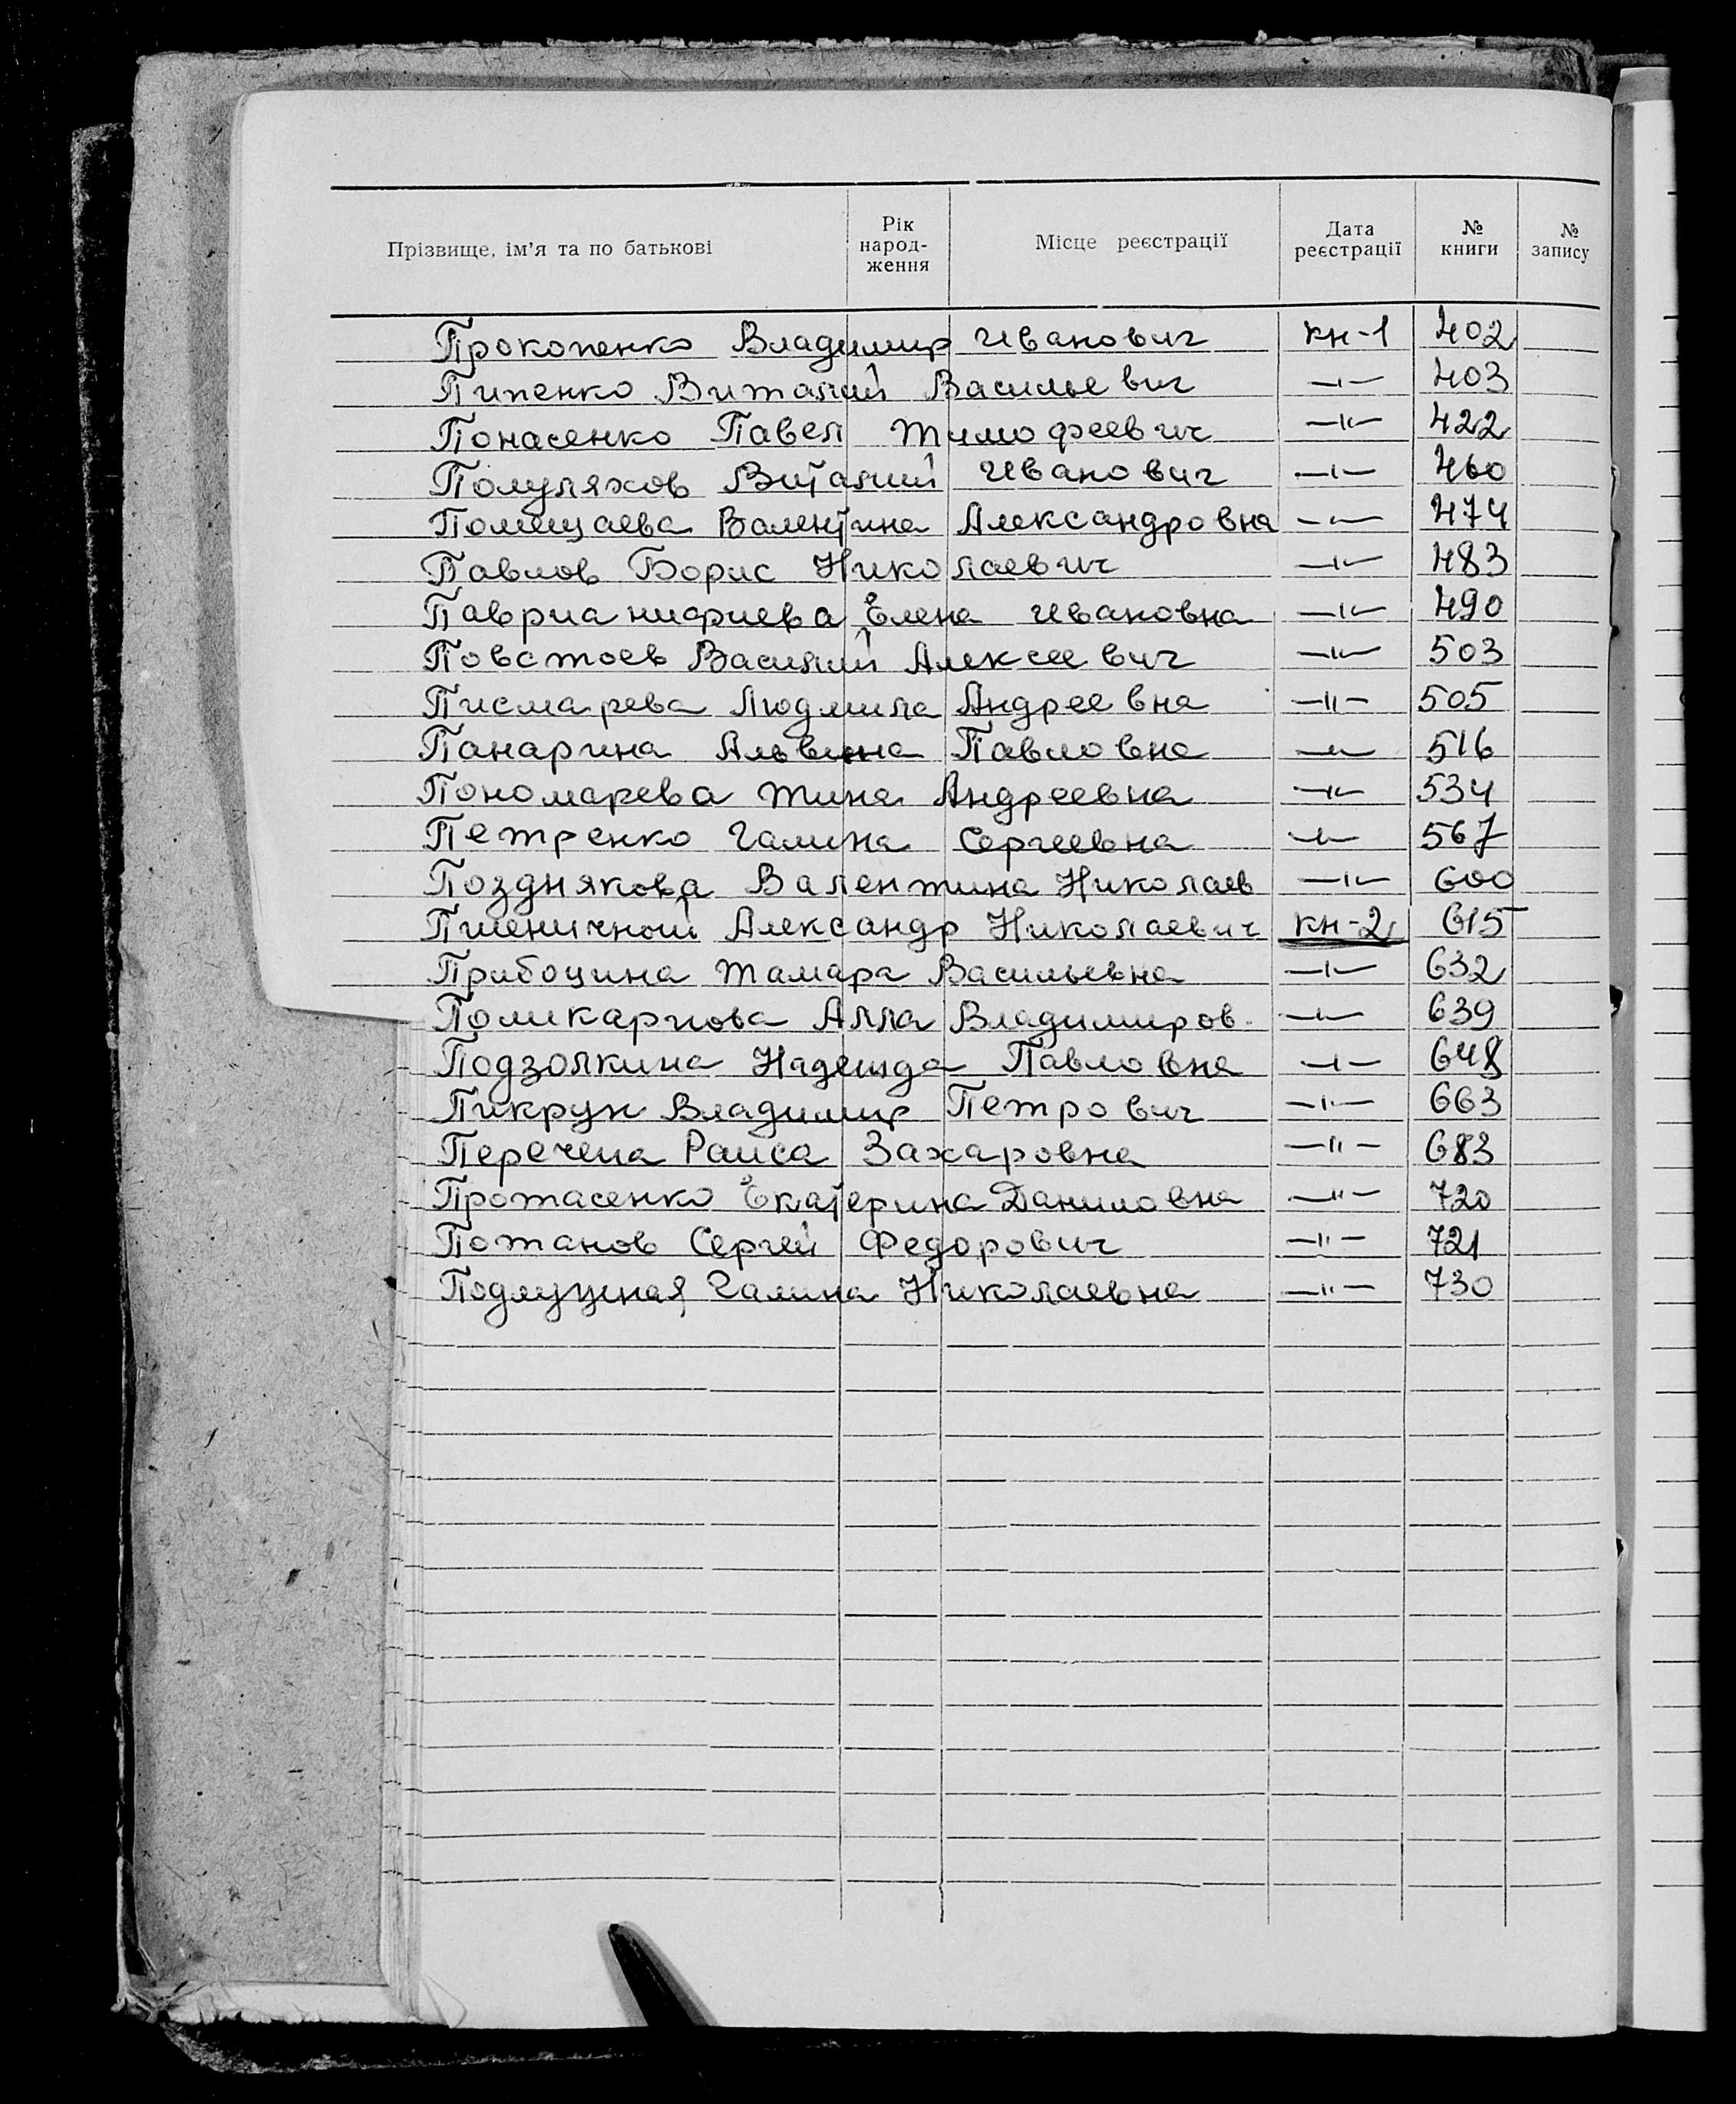 Прізвище, ім'я та по батькові Рік народ- ження Місце реєстрації Дата реєстрації № книги № запису
Прокопенко Владимир Иванович кн-1 402
Пипенко Виталий Васильевич —"— 403
Понасенко Павел Тимофеевич —"— 422
Полуляхов Виталий Иванович —"— 460
Помещаева Валентина Александровна —"— 474
Павлов Борис Николаевич —"— 483
Елена Ивановна —"— 490
Повстоев Василий Алексеевич —"— 503
Писмарева Людмила Андреевна —"— 505
Панарина Альвина Павловна —"— 516
Пономарева Тина Андреевна —"— 534
Петренко Галина Сергеевна —"— 567
Позднякова Валентина Николаев —"— 600
Пшеничный Александр Николаевич кн-2 615
Прибоцина Тамара Васильевна —"— 632
Поликарпова Алла Владимиров. —"— 639
Подзолкина Надежда Павловна —"— 648
Пикрун Владимир Петрович —"— 663
Перечепа Раиса Захаровна —"— 683
Протасенко Екатерина Даниловна —"— 720
Потапов Сергей Федорович —"— 721
Галина Николаевна —"— 730